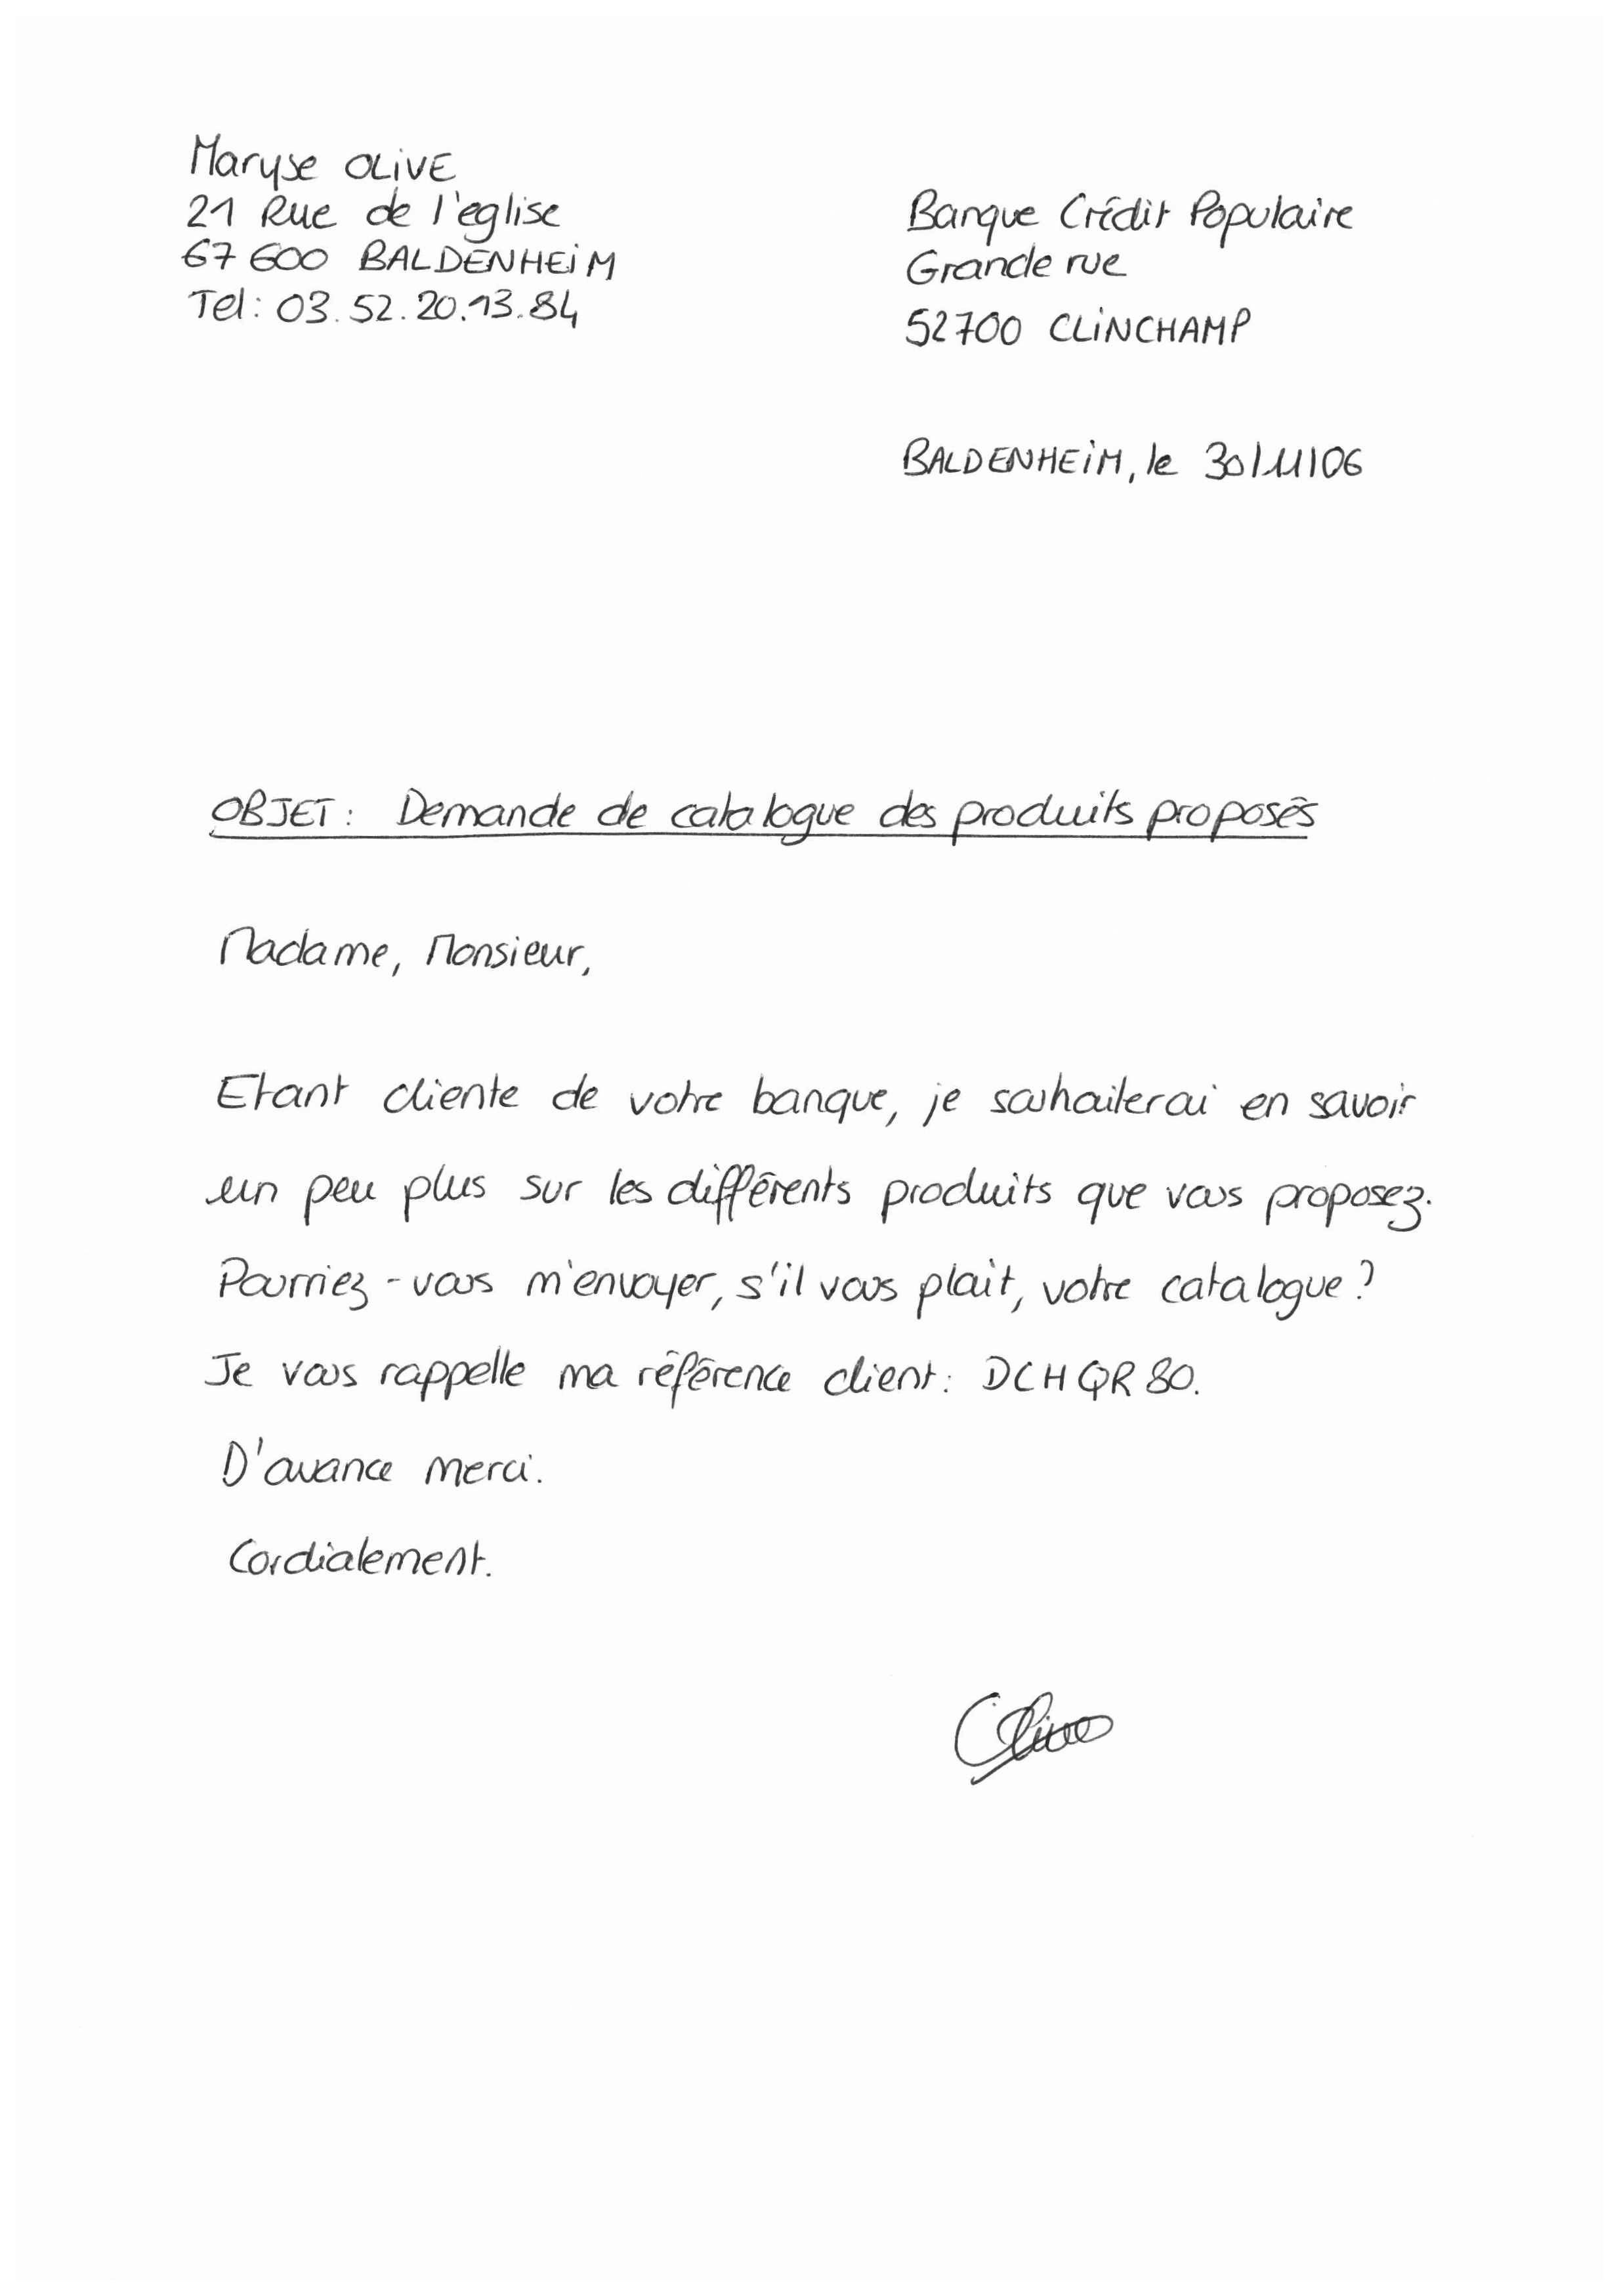 Maryse OLIVE
21 Rue de l'eglise
67 600 BALDENHEIM
Tel : 03.52.20.13.84
Banque Crédit Populaire
Grande rue
52700 CLINCHAMP
BALDENHEIM, le 30/11/06
OBJET : Demande de catalogue des produits proposés
Madame, Monsieur,
Etant cliente de votre banque, je souhaiterai en savoir
un peu plus sur les différents produits que vous proposez.
Pourriez-vous m'envoyer, s'il vous plait, votre catalogue ?
Je vous rappelle ma référence client : DCHQR80.
D'avance merci.
Cordialement.
Olive